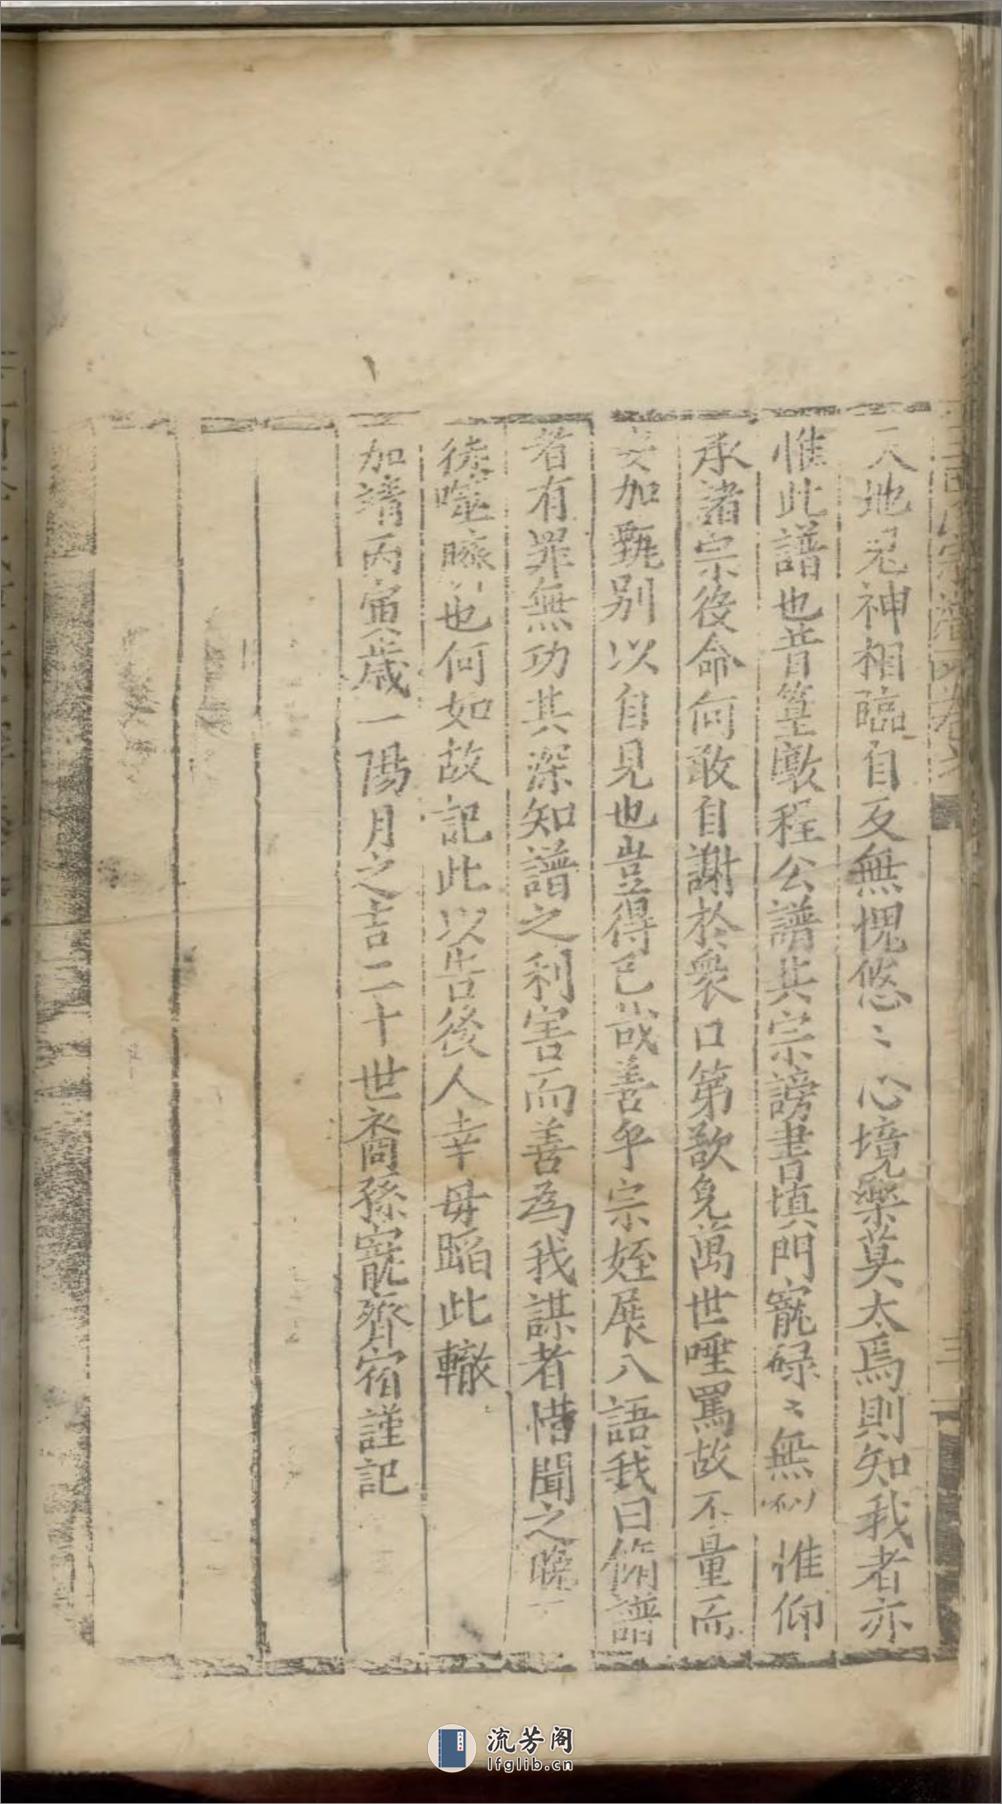 天地鬼神相臨自反無愧悠〻心境樂莫大焉則知我者亦
惟此譜也昔篁墩程公譜共宗謗書填門寵碌〻無似惟仰
承諸宗後命何敢自謝於衆口第欲免萬世唾罵故不量而
妄加甄别以自見也豈得已哉善乎宗姪展八語我曰脩譜
者有罪無功其深知譜之利害而善為我謀者惜聞之晚
後噬臍也何如故記此以告後人幸毋蹈此轍
加靖丙寅歲一陽月之吉二十世裔孫寵齊宿謹記
流芳阁
lfglib.cn